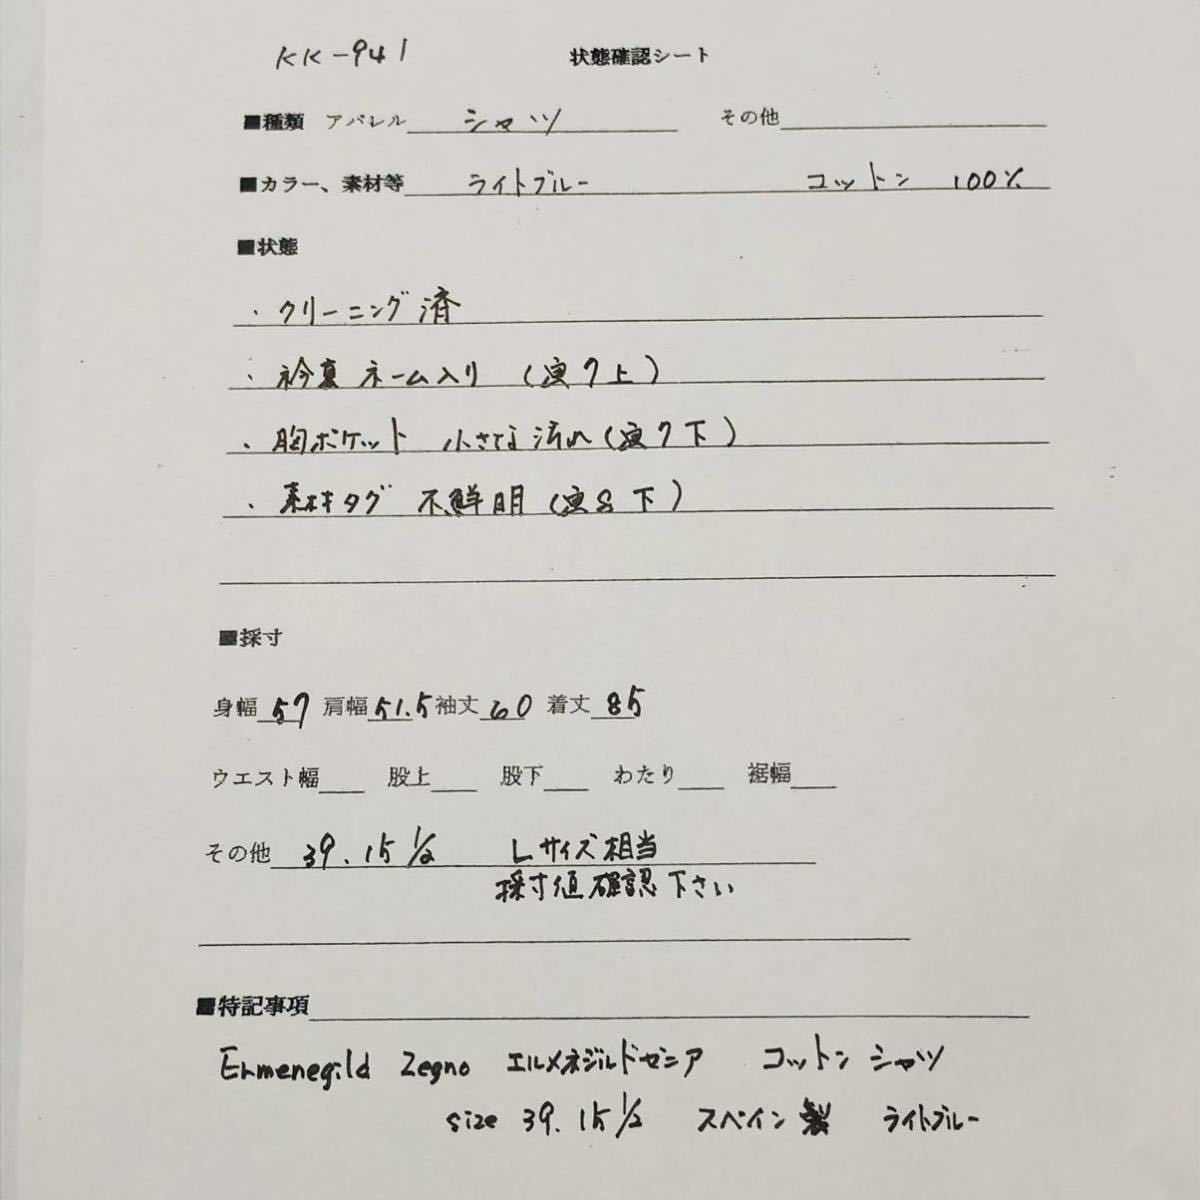 KK-941 状態確認シート
■種類 アパレル シャツ その他
■カラー、素材等 ライトブルー コットン 100%
■状態
・クリーニング済
・衿裏 ネーム入り (画7上)
・胸ポケット 小さな汚れ(画7下)
・素材タグ 不鮮明(画8下)
■採寸
身幅 57 肩幅 51.5 袖丈 60 着丈 85
ウエスト幅 股上 股下 わたり 裾幅
その他 39.15 1/2 Lサイズ相当
採寸値確認下さい
■特記事項
Ermenegild Zegna エルメネジルドゼニア コットン シャツ
size 39.15 1/2 スペイン製 ライトブルー